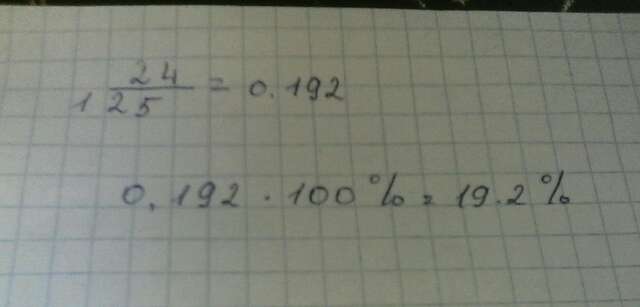 24/125 = 0.192
0.192 · 100% = 19.2%